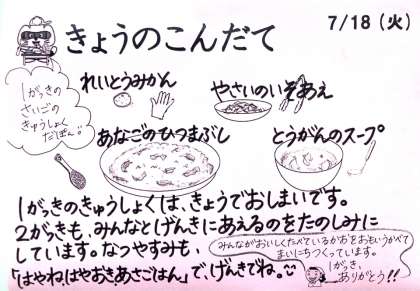 きょうのこんだて
7/18（火）
1がっきの
さいごの
きゅうしょく
だぽん。
れいとうみかん
やさいのいそあえ
あなごのひつまぶし
とうがんのスープ
1がっきのきゅうしょくは、きょうでおしまいです。
2がっきも、みんなとげんきにあえるのをたのしみに
しています。なつやすみも、
「はやね、はやおき、あさごはん」で、げんきでね。
みんながおいしくたべているかおをおもいうかべて
まいにちつくっています。
1がっき、
ありがとう!!